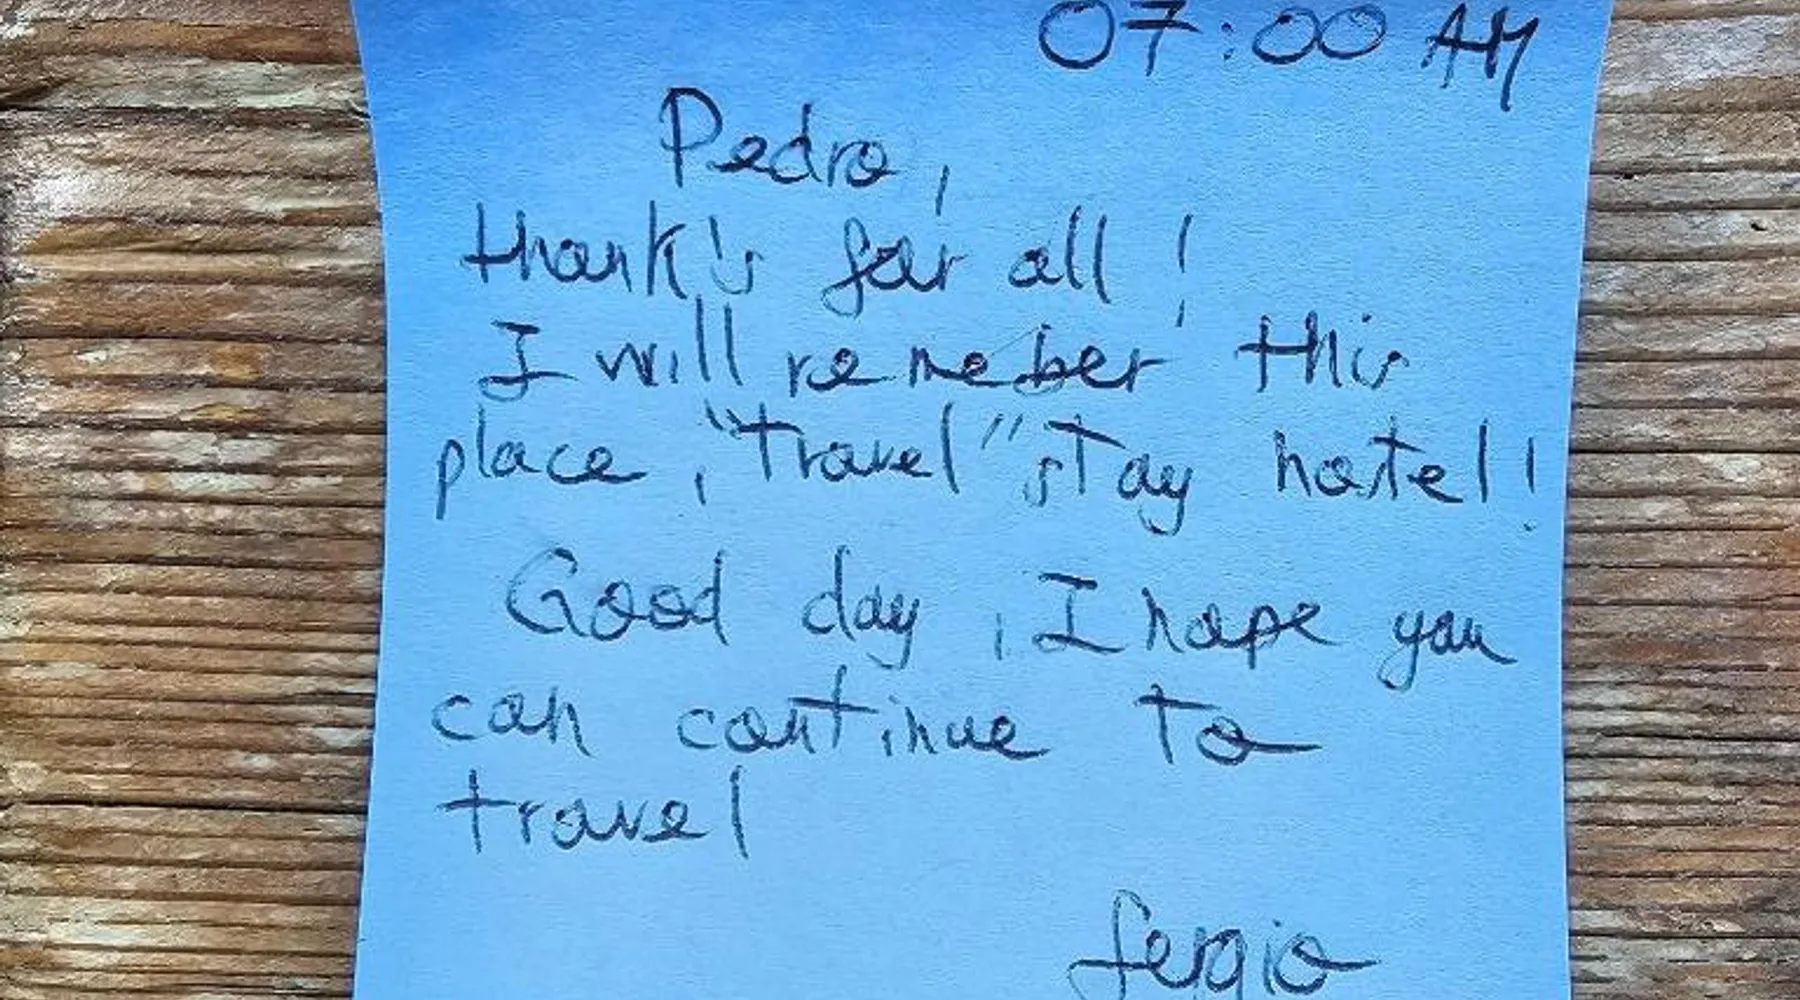 07:00 AM
Pedro,
thank's for all!
I will remeber this
place, "Travel" stay hostel!
Good day, I hope you
can continue to
travel
Sergio